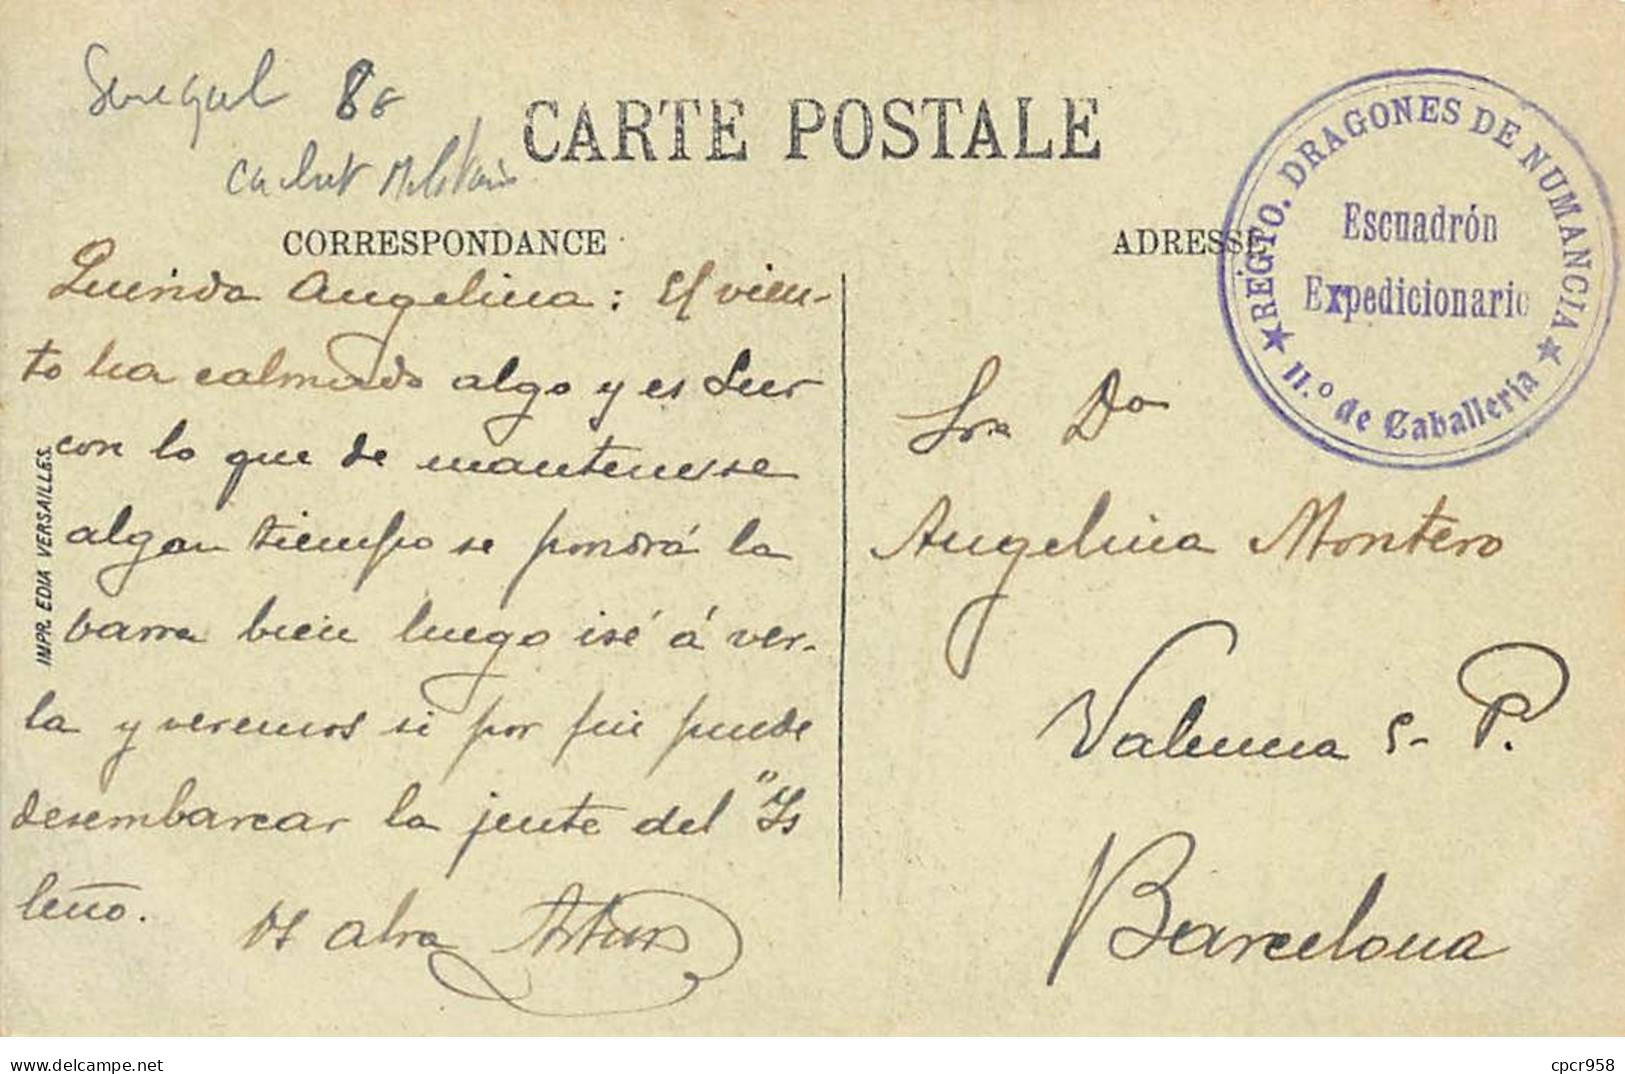 Senegal 8€
cachet Militaire
CARTE POSTALE
CORRESPONDANCE
ADRESSE
REGTO. DRAGONES DE NUMANCIA
Escuadrón
Expedicionario
★ 11.º de Caballería ★
Querida Angelina: El vien-
to ha calmado algo y es Sur
con lo que de mantenerse
algun tiempo se pondrá la
barra bien luego iré á ver-
la y veremos si por fin puede
desembarcar la jente del "Is
leño.
Arturo
Sra Da
Angelina Montero
Valencia P.
Barcelona
IMPR. EDIA VERSAILLES.
delcampe.net
cpcr958